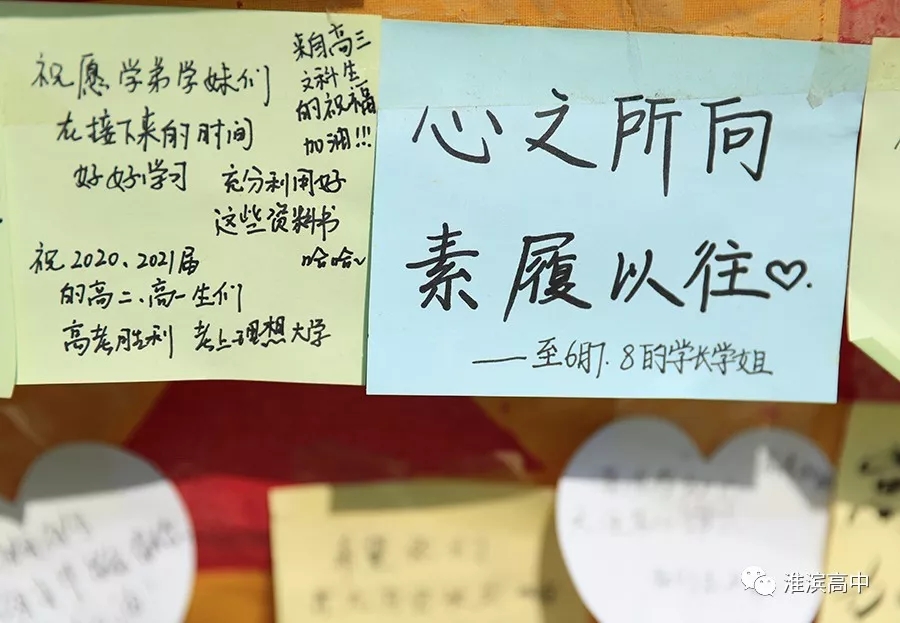 祝愿学弟学妹们
在接下来的时间
好好学习
充分利用好
这些资料书
哈哈~
祝2020、2021届
的高二、高一生们
高考胜利 考上理想大学
来自高三
文科生
的祝福
加油!!!
心之所向
素履以往♡.
——至6月7.8的学长学姐
淮滨高中